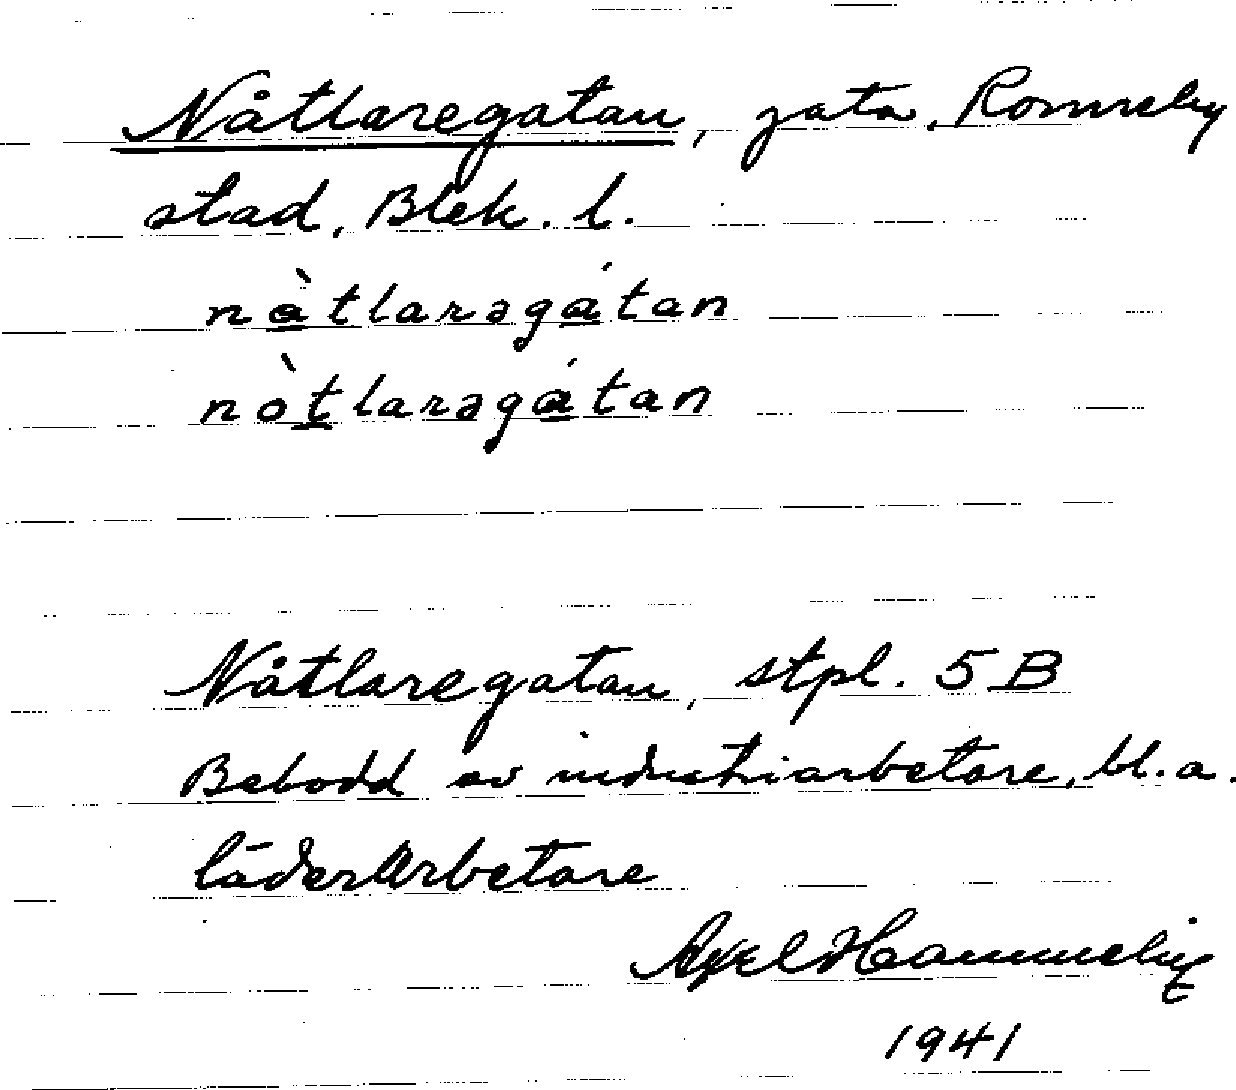 Nåtlaregatan, gata, Ronneby
stad, Blek. l.
nàtlarəgátan
nòtlarəgátan
Nåtlaregatan, stpl. 5 B
Bebodd av industriarbetare, bl. a.
läderarbetare
Axel
1941